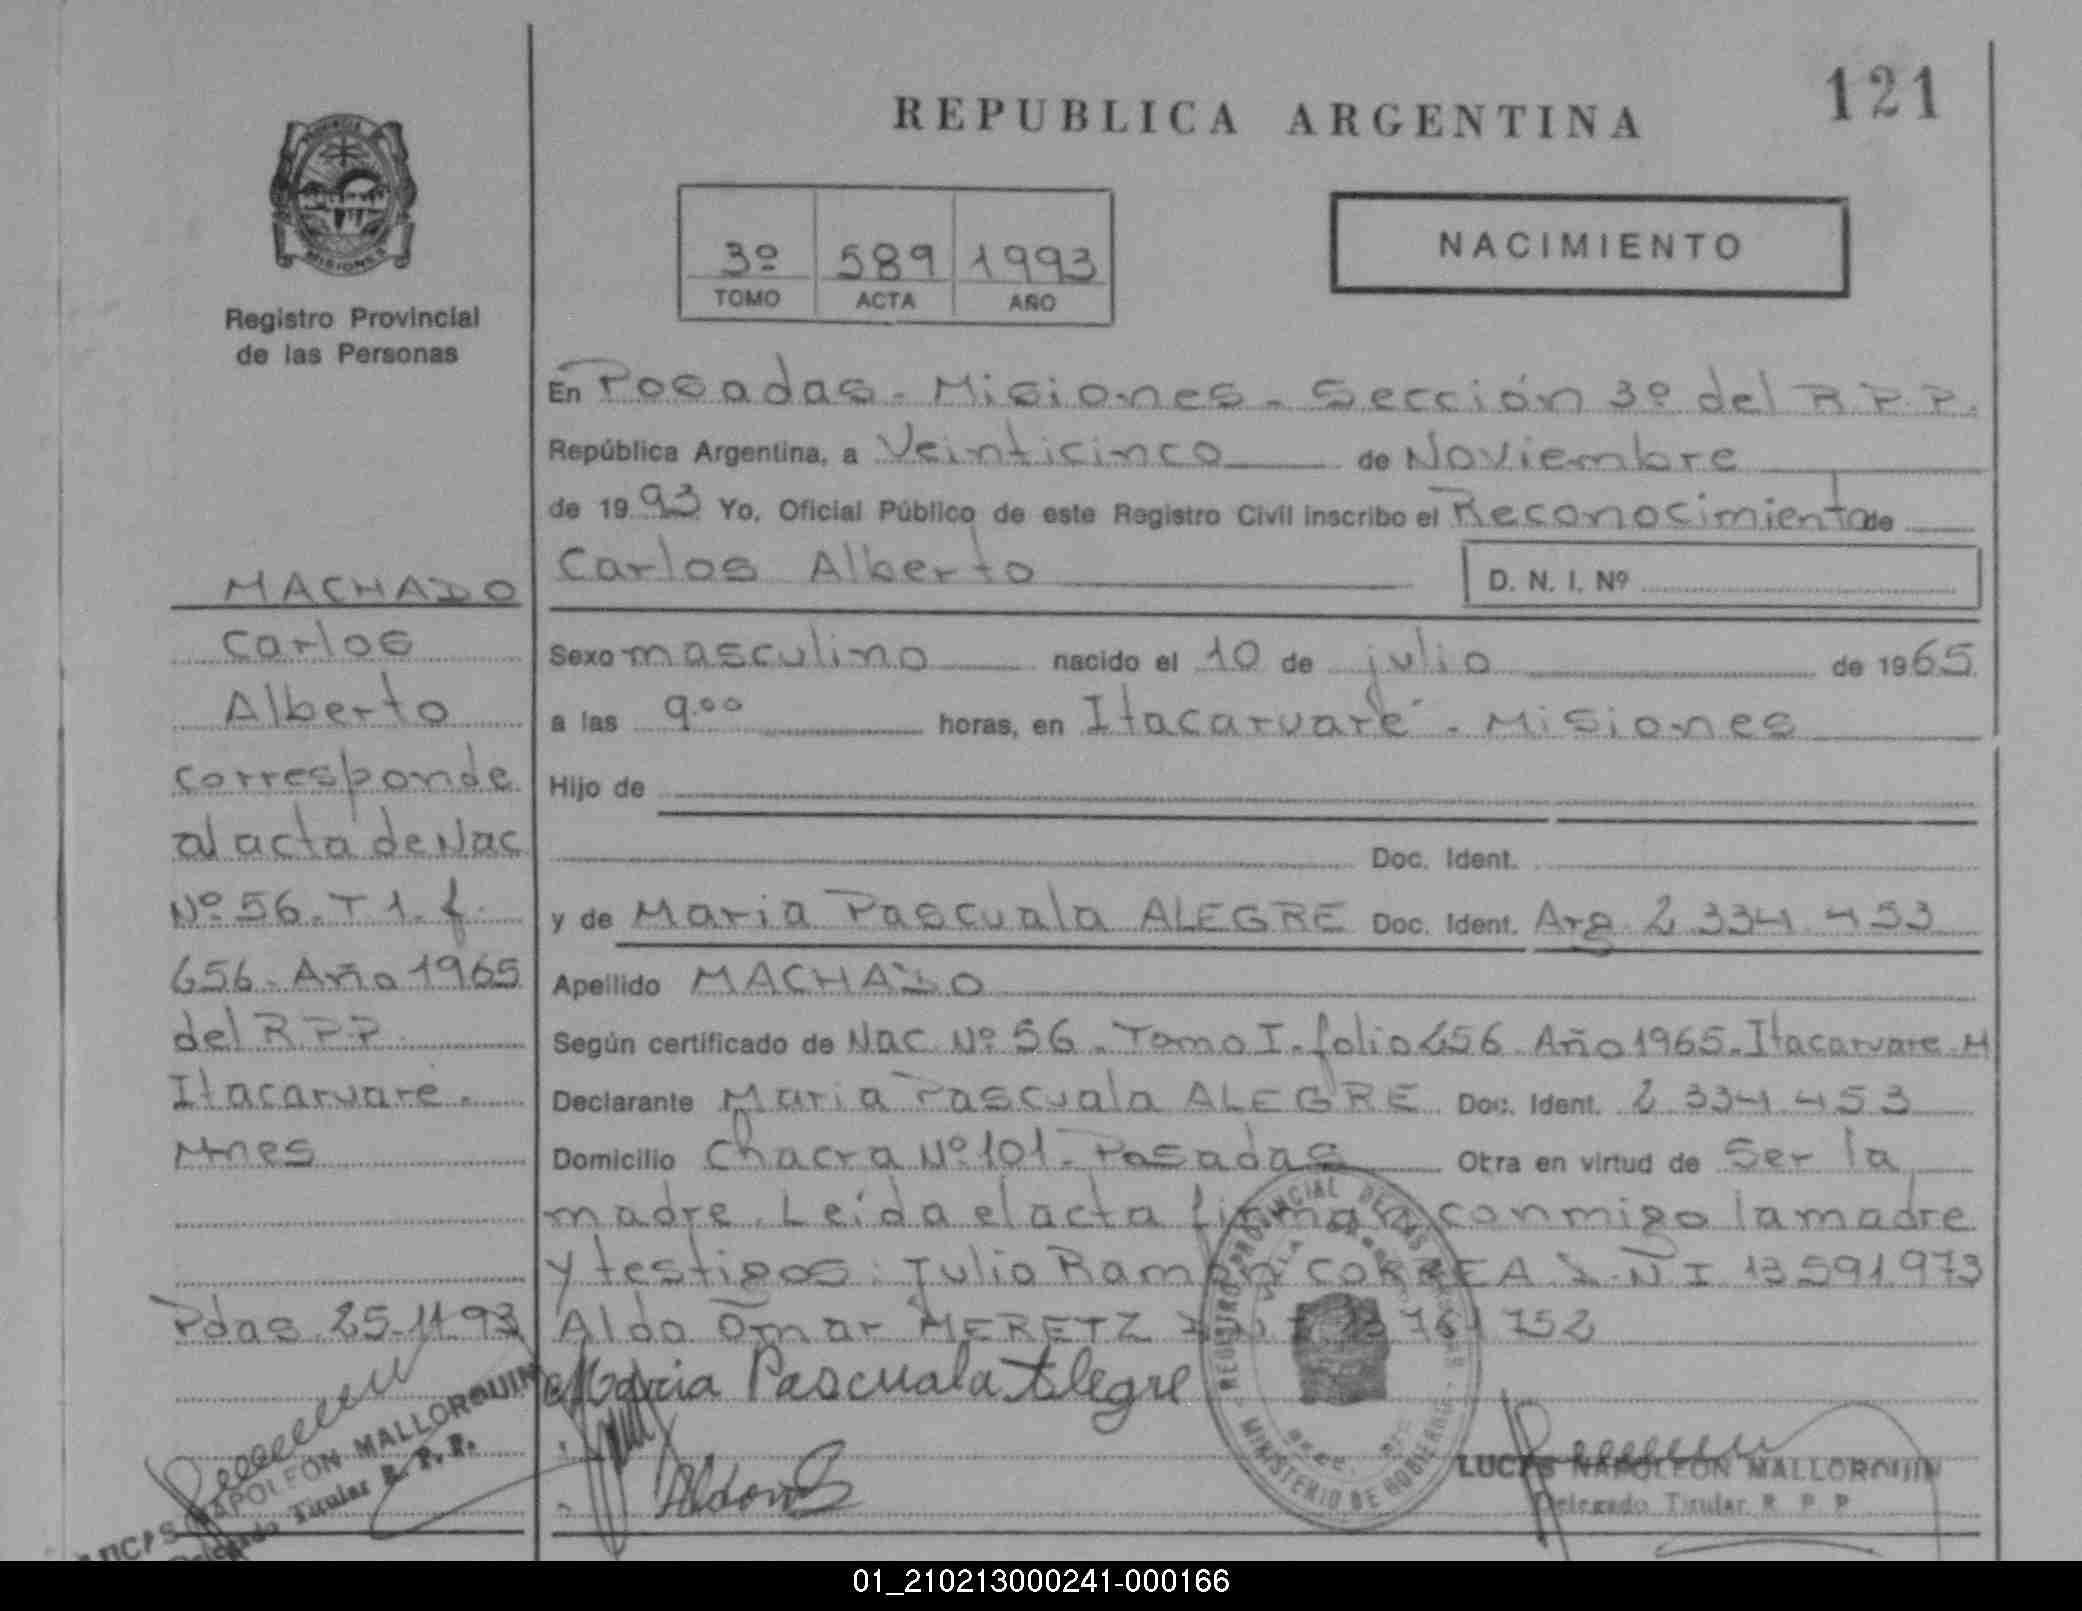 121
REPUBLICA ARGENTINA
PROVINCIA
MISIONES
Registro Provincial
de las Personas
3º 589 1993
TOMO ACTA AÑO
NACIMIENTO
En Posadas - Misiones - Sección 3º del R.P.P.
República Argentina, a Veinticinco de Noviembre
de 1993 Yo, Oficial Público de este Registro Civil inscribo el Reconocimiento de
Carlos Alberto D. N. I. Nº
Sexo masculino nacido el 10 de julio de 1965
a las 9.00 horas, en Itacaruaré - Misiones
Hijo de
Doc. Ident.
y de Maria Pascuala ALEGRE Doc. Ident. Arg. 2 334 453
Apellido MACHADO
Según certificado de Nac. Nº 56 - Tomo I - folio 656 Año 1965 - Itacaruare M
Declarante Maria Pascuala ALEGRE Doc. Ident. 2 334 453
Domicilio Chacra Nº 101 - Posadas Otra en virtud de Ser la
madre. Leida el acta firman conmigo la madre
y testigos: Julio Ramon CORREA D.N.I 13 591 973
Aldo Omar MERETZ
Maria Pascuala Alegre
LUCAS NAPOLEON MALLORQUIN
Delegado Titular R. P. P.
REGISTRO PROVINCIAL DE LAS PERSONAS
MINISTERIO DE GOBIERNO
MACHADO
Carlos
Alberto
corresponde
al acta de Nac
Nº 56 - T 1 - f.
656 - Año 1965
del R.P.P.
Itacaruare -
Mnes
Pdas 25-11-93
LUCAS NAPOLEON MALLORQUIN
Delegado Titular R. P. P.
01_210213000241-000166